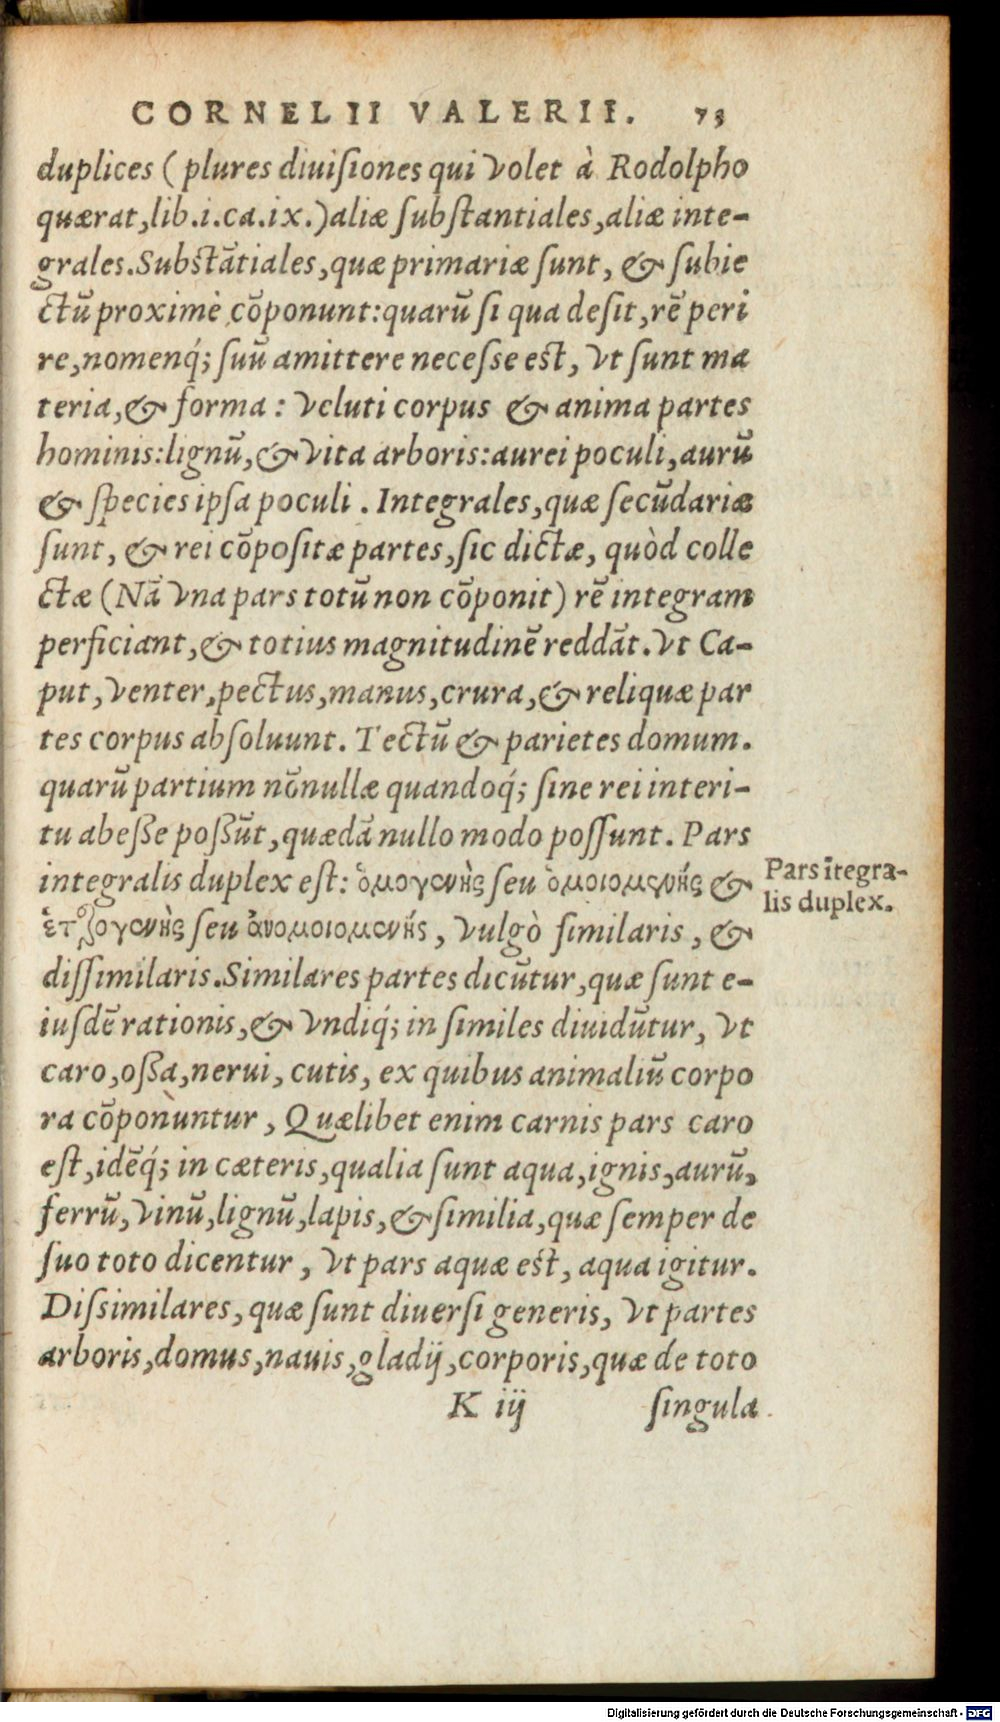 CORNELII VALERII. 73
duplices (plures diuiſiones qui volet à Rodolpho
quærat, lib.i.ca.ix.) aliæ ſubſtantiales, aliæ inte-
grales. Subſtãtiales, quæ primariæ ſunt, & ſubie
ctũ proximè cõponunt: quarũ ſi qua deſit, rẽ peri
re, nomenq́; ſuũ amittere neceſse eſt, vt ſunt ma
teria, & forma: veluti corpus & anima partes
hominis: lignũ, & vita arboris: aurei poculi, aurũ
& ſpecies ipſa poculi. Integrales, quæ ſecũdariæ
ſunt, & rei cõpoſitæ partes, ſic dictæ, quòd colle
ctæ (Nã vna pars totũ non cõponit) rẽ integram
perficiant, & totius magnitudinẽ reddãt. vt Ca-
put, venter, pectus, manus, crura, & reliquæ par
tes corpus abſoluunt. Tectũ & parietes domum.
quarũ partium nõnullæ quandoq́; ſine rei interi-
tu abeſſe poſſũt, quædã nullo modo poſſunt. Pars
integralis duplex eſt: ὁμογενὴς ſeu ὁμοιομερὴς &
ἑτερογενὴς ſeu ἀνομοιομερὴς, vulgò ſimilaris, &
diſſimilaris. Similares partes dicũtur, quæ ſunt e-
iuſdẽ rationis, & vndiq́; in ſimiles diuidũtur, vt
caro, oſſa, nerui, cutis, ex quibus animaliũ corpo
ra cõponuntur, Quælibet enim carnis pars caro
eſt, idẽq́; in cæteris, qualia ſunt aqua, ignis, aurũ,
ferrũ, vinũ, lignũ, lapis, & ſimilia, quæ ſemper de
ſuo toto dicentur, vt pars aquæ eſt, aqua igitur.
Diſsimilares, quæ ſunt diuerſi generis, vt partes
arboris, domus, nauis, gladij, corporis, quæ de toto
K iij ſingula
Pars ĩtegra-
lis duplex.
Digitalisierung gefördert durch die Deutsche Forschungsgemeinschaft - DFG